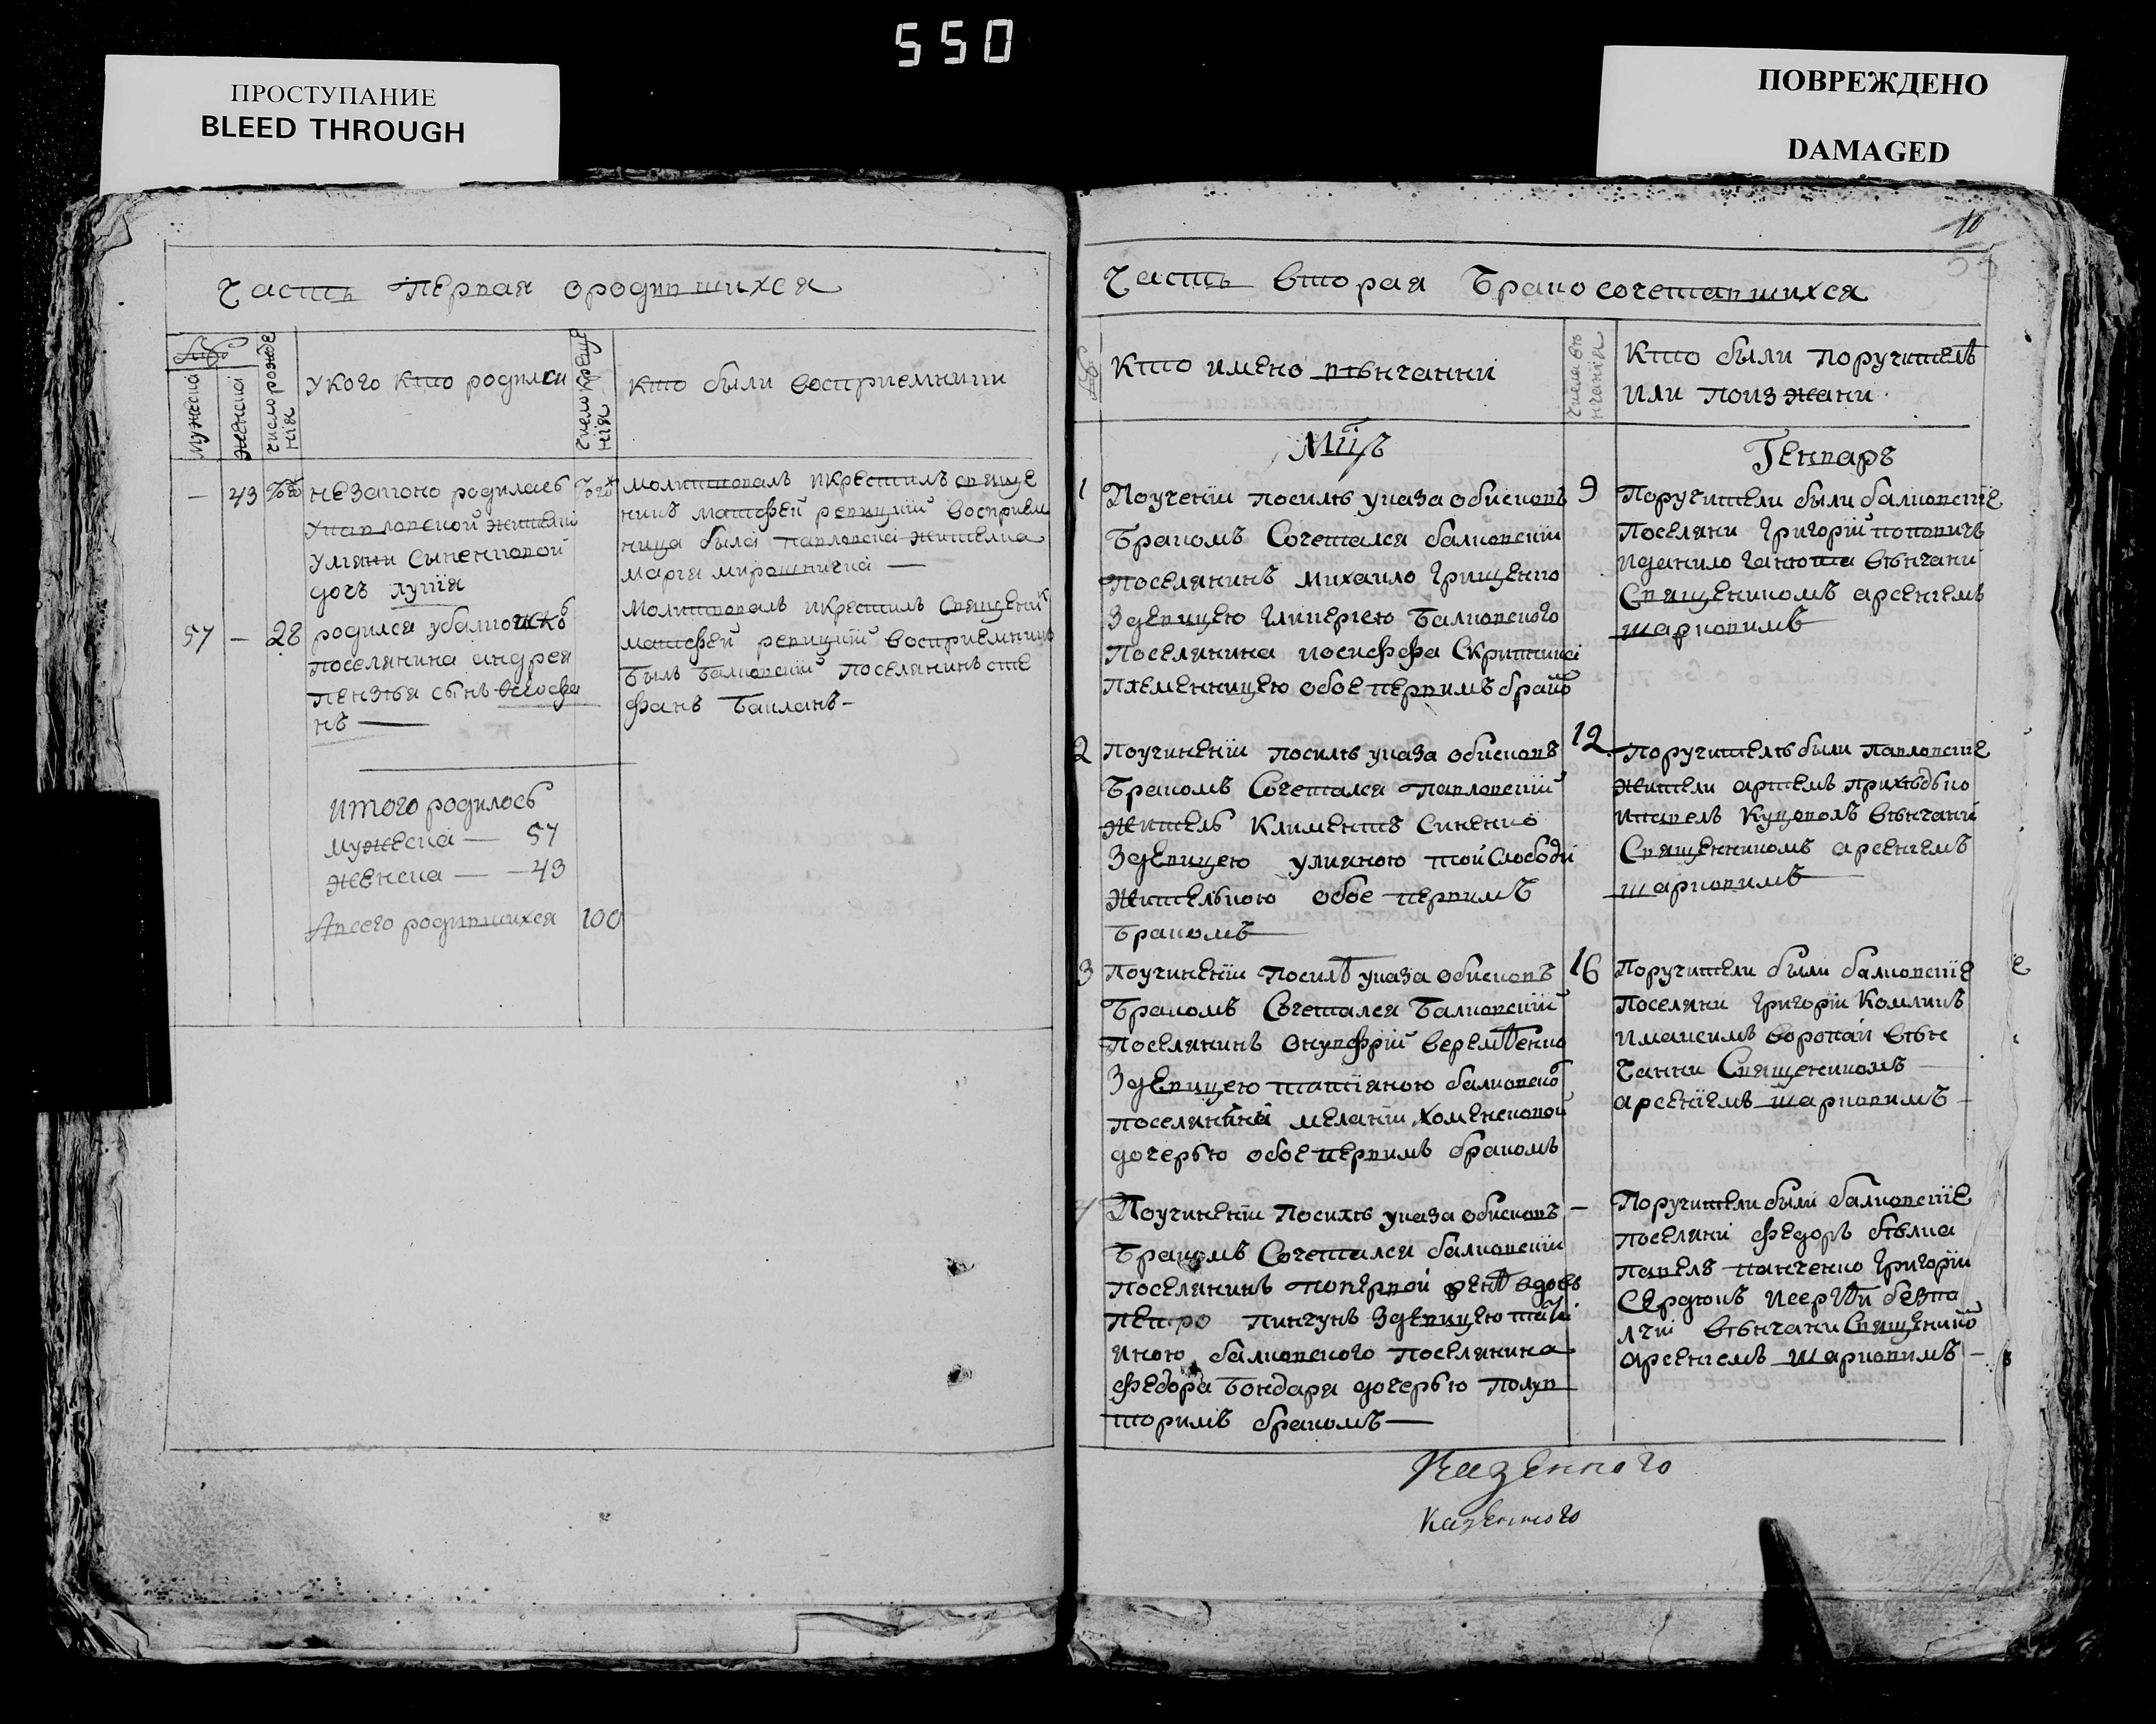 550
ПРОСТУПАНИЕ
BLEED THROUGH
ПОВРЕЖДЕНО
DAMAGED
Часть первая ородившихся
Мужеска
женска
число рожде
нїя
Укого кто родился
число креще
нїя
кто были восприемники
— 43
незаконо родилась
Упавловской жителки
Улияни Сыненковой
дочь лукїя
молитвовалъ икрестилъ свяще
никъ матфей ревицкїй восприем
ница была павловска жителка
марïя мирошничка —
57 — 28
родился убалковскъ
поселянина андрея
пензъя сынъ агафо
нъ —
Молитвовалъ икрестилъ Священик
матфей ревицкїй восприемникъ
былъ балковскїй поселянинъ сте
фанъ Бакланъ —
итого родилось
мужеска — 57
женска — 43
Авсего родившихся 100
10
55
Часть вторая Бракосочетавшихся
Кто имено вѣнчанни
числа вѣ
нчанїя
Кто были поручителѣ
или поизжани
Мцъ
Генваръ
1 Поученїи посилѣ указа обисковъ 9
Бракомъ Сочетался балковскїи
поселянинъ михаило Грищенко
Здевицею Гликерїею Балковского
Поселянина иосиффа Скритника
Племенницею обое первимъ бракō
Поручители были балковскїе
Поселяни Григорїй поповичъ
иданило ганюта вѣнчани
Священикомъ арсенїемъ
шарковимъ
2 Поучиненїи посилѣ указа обисковъ 12
Бракомъ Сочетался павловскїй
Житель Климентъ Синенко
Здевицею улияною той Слободи
Жителькою обое первимъ
Бракомъ
Поручителѣ были павловскїе
жители артемъ прихѣдько
ипавелъ Куцоволъ вѣнчани
Священникомъ арсенїемъ
шарковимъ
3 Поучиненїи посилѣ указа обисковъ 16
Бракомъ Сочетался Балковскїй
Поселянинъ Онуфрїй веремѣенко
Здевицею татїяною балковскō
поселянкй меланїи хоменковой
дочерью обое первимъ бракомъ
Поручители были балковскїе
Поселяни Григорїи Комликъ
имаксимъ воропай вѣн
чанни Священикомъ
арсенїемъ шарковимъ —
4 Поучиненїи Посилѣ указа обисковъ —
Бракомъ Сочетался балковскїи
поселянинъ поперво͡й женѣ вдовъ
петро пинчукъ Здевицею татї
яною балковского поселянина
федора бондаря дочерью полув
торимъ бракомъ —
Поручители были балковскїе
поселяни федоръ бѣлка
павелъ панченко Григорїи
Сердюкъ исергѣи безпа
лчїй вѣнчани Священикō
арсенїемъ шарковимъ —
Казенного
Казенного